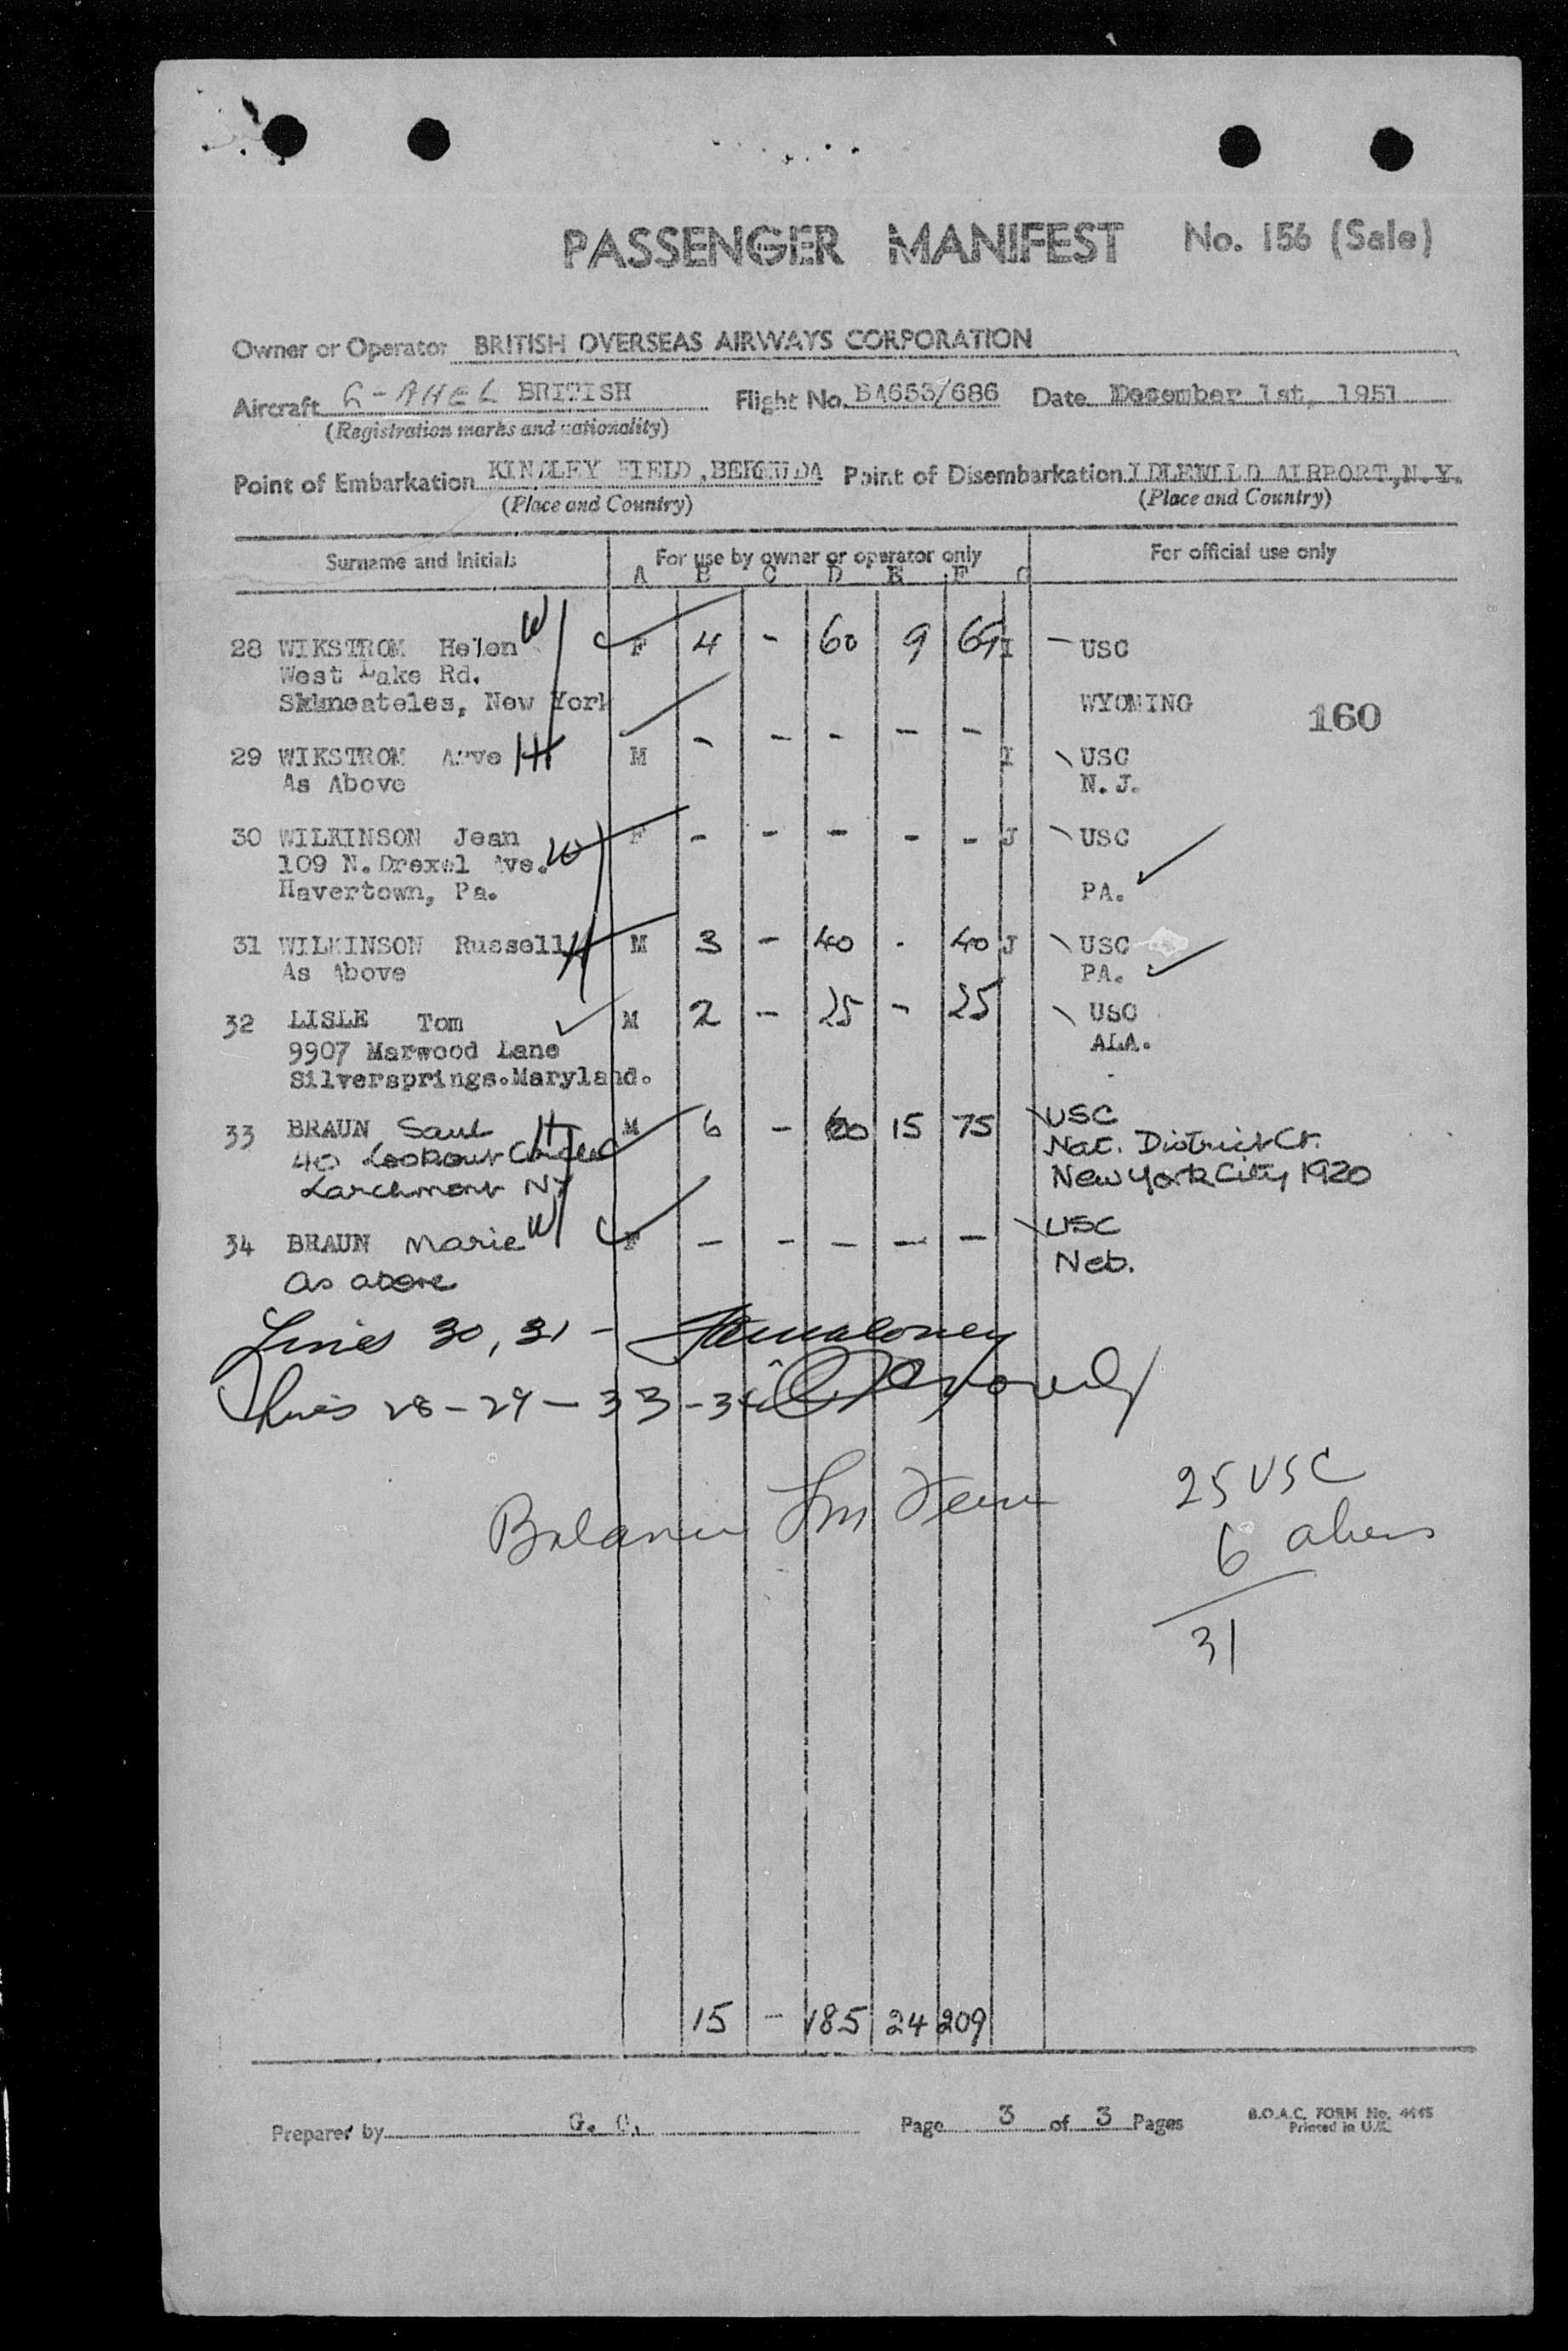 PASSENGER MANIFEST No. 156 (Sale)
Owner or Operator BRITISH OVERSEAS AIRWAYS CORPORATION
Aircraft G-AHEL BRITISH Flight No. BA653/686 Date December 1st, 1951
(Registration marks and nationality)
Point of Embarkation KINDLEY FIELD, BERMUDA Point of Disembarkation IDLEWILD AIRPORT, N.Y.
(Place and Country) (Place and Country)
Surname and Initials For use by owner or operator only For official use only
A B C D E F G
28 WIKSTROM Helen W F 4 - 60 9 69 I USC
West Lake Rd.
Skkneateles, New York WYOMING 160
29 WIKSTROM Arve H M - - - - - I USC
As Above N.J.
30 WILKINSON Jean F - - - - - J USC
109 N. Drexel Ave. W
Havertown, Pa. PA.
31 WILKINSON Russell H M 3 - 40 - 40 J USC
As Above PA.
32 LISLE Tom M 2 - 25 - 25 USC
9907 Marwood Lane ALA.
Silversprings.Maryland.
33 BRAUN Saul H M 6 - 60 15 75 USC
40 Lookout Circle Nat. District Ct.
Larchmont NY New York City 1920
34 BRAUN Marie W F - - - - - USC
As above Neb.
Lines 30, 31 -
Lines 28 - 29 - 33 - 34
Balance 25 USC
6 aliens
31
15 - 185 24 209
Prepared by G. C. Page 3 of 3 Pages B.O.A.C. FORM No. 4445
Printed in U.K.